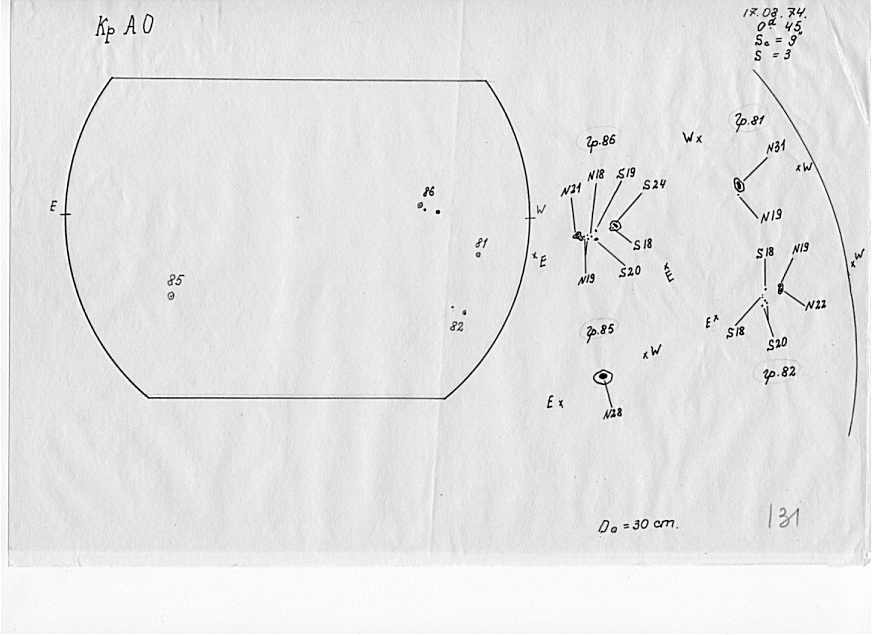 Кр А О
17.08.74.
0ᵈ 45
Sₐ = 9"
S = 3
гр.86
W x
гр.81
N31
x W
N21
N18
S19
S24
86
E
W
N19
S18
81
x E
S18
N19
x W
N19
S20
x E
85
N22
E x
S18
гр.85
S20
82
x W
гр.82
E x
N28
D₀ = 30 cm.
131